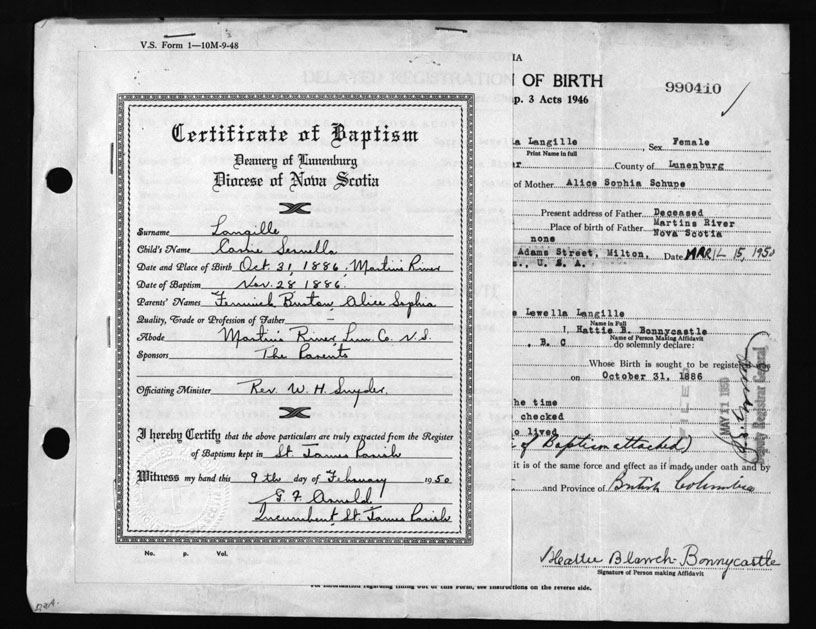 V.S. Form 1—10M-9-48
Certificate of Baptism
Deanery of Lunenburg
Diocese of Nova Scotia
Surname Langille
Child's Name Carrie
Date and Place of Birth Oct. 31, 1886, Martins River
Date of Baptism Nov. 28 1886.
Parents' Names Fenwick Burton, Alice Sophia
Quality, Trade or Profession of Father
Abode Martins River Lun. Co. N.S.
Sponsors The Parents
Officiating Minister Rev. W. H. Snyder.
I hereby Certify that the above particulars are truly extracted from the Register
of Baptisms kept in St. James Parish
Witness my hand this 9th day of February 1950
Arnold
Incumbent St. James Parish
No. p. Vol.
IA
OF BIRTH
p. 3 Acts 1946
990410
a Langille , Sex Female
Print Name in full
er County of Lunenburg
of Mother Alice Sophia Schupe
Present address of Father Deceased
Place of birth of Father Martins River
Nova Scotia
none
Adams Street, Milton, Date APRIL 15, 1950
s., U. S. A.
e Lewella Langille
Name in Full
I, Hattie B. Bonnycastle
Name of Person Making Affidavit
, B. C do solemnly declare:
Whose Birth is sought to be registe
on October 31, 1886
FILED
MAY 11 1950
Deputy Registrar General
he time
checked
o lived
of Baptism attached)
it is of the same force and effect as if made under oath and by
and Province of British Columbia
Hattie Blanch Bonnycastle
Signature of Person making Affidavit
For information regarding filling out of this Form, see instructions on the reverse side.